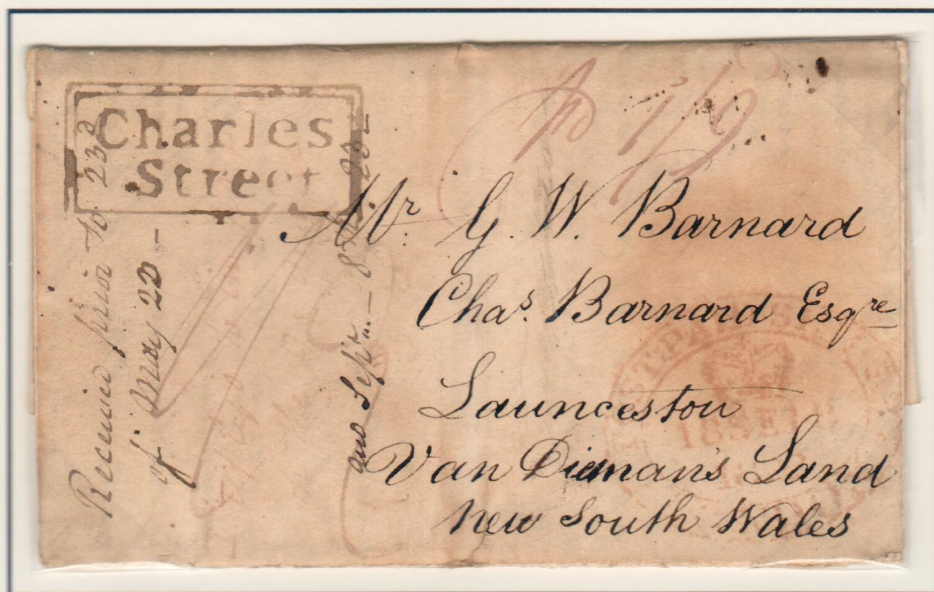 Charles
Street
Pd 1/9
Mr. G. W. Barnard
Chas. Barnard Esqre
Launceston
Van Dieman's Land
New South Wales
Received prior to 23d
of May 22 -
ans Sepr. - 8th 23 -